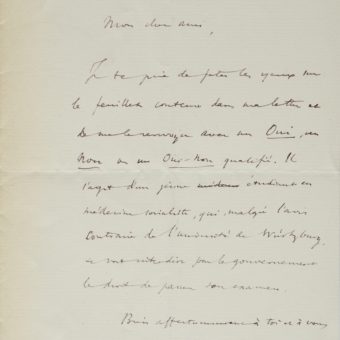 Mon cher ami,
Je te prie de jeter les yeux sur
le feuillet contenu dans ma lettre et
de me le renvoyer avec un Oui, un
Non ou un Oui-Non qualifié. Il
s'agit d'un jeune étudiant en
médecine socialiste, qui, malgré l'avis
contraire de l'université de Würtzburg,
se voit interdire par le gouvernement
le droit de passer son examen.
Bien affectueusement à toi et à vous